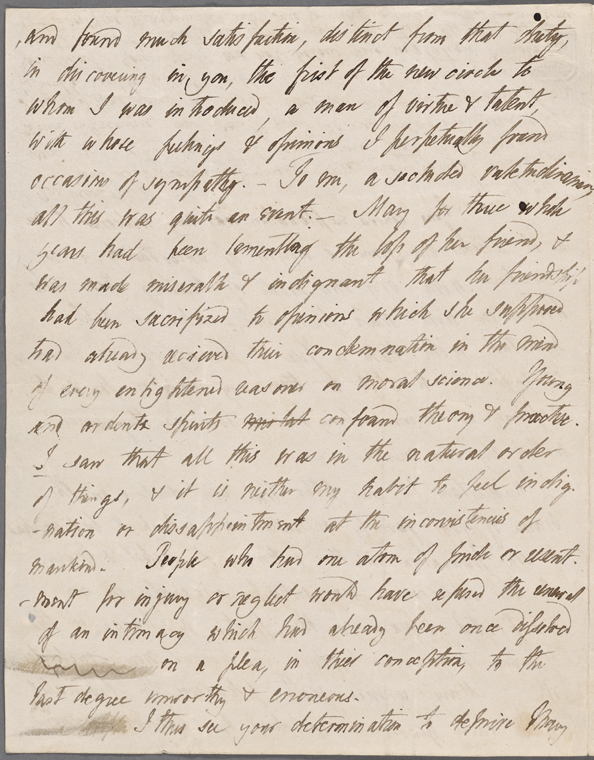 and found much satisfaction, distinct from that duty,
in discovering in you, the first of the new circle to
whom I was introduced, a man of virtue & talent,
with whose feelings & opinions I perpetually found
occasion of sympathy. – To me, a secluded valetudinarian,
all this was quite an event. – Mary for three whole
years had been lamenting the loss of her friend, &
was made miserable & indignant that the friendship
had been sacrifized to opinions which she supposed
had already received their condemnation in the mind
of every enlightened reasoner on moral science. Young
and ardent spirits confound theory & practice.
I saw that all this was in the natural order
of things, & it is neither my habit to feel indig-
-nation or dissappointment at the inconsistencies of
mankind. People who had one atom of pride or resent-
-ment for injury or neglect would have refused the renewal
of an intimacy which had already been once dissolved
on a plea, in their conception, to the
last degree unworthy & erroneous.
I thus see your determination to deprive Mary